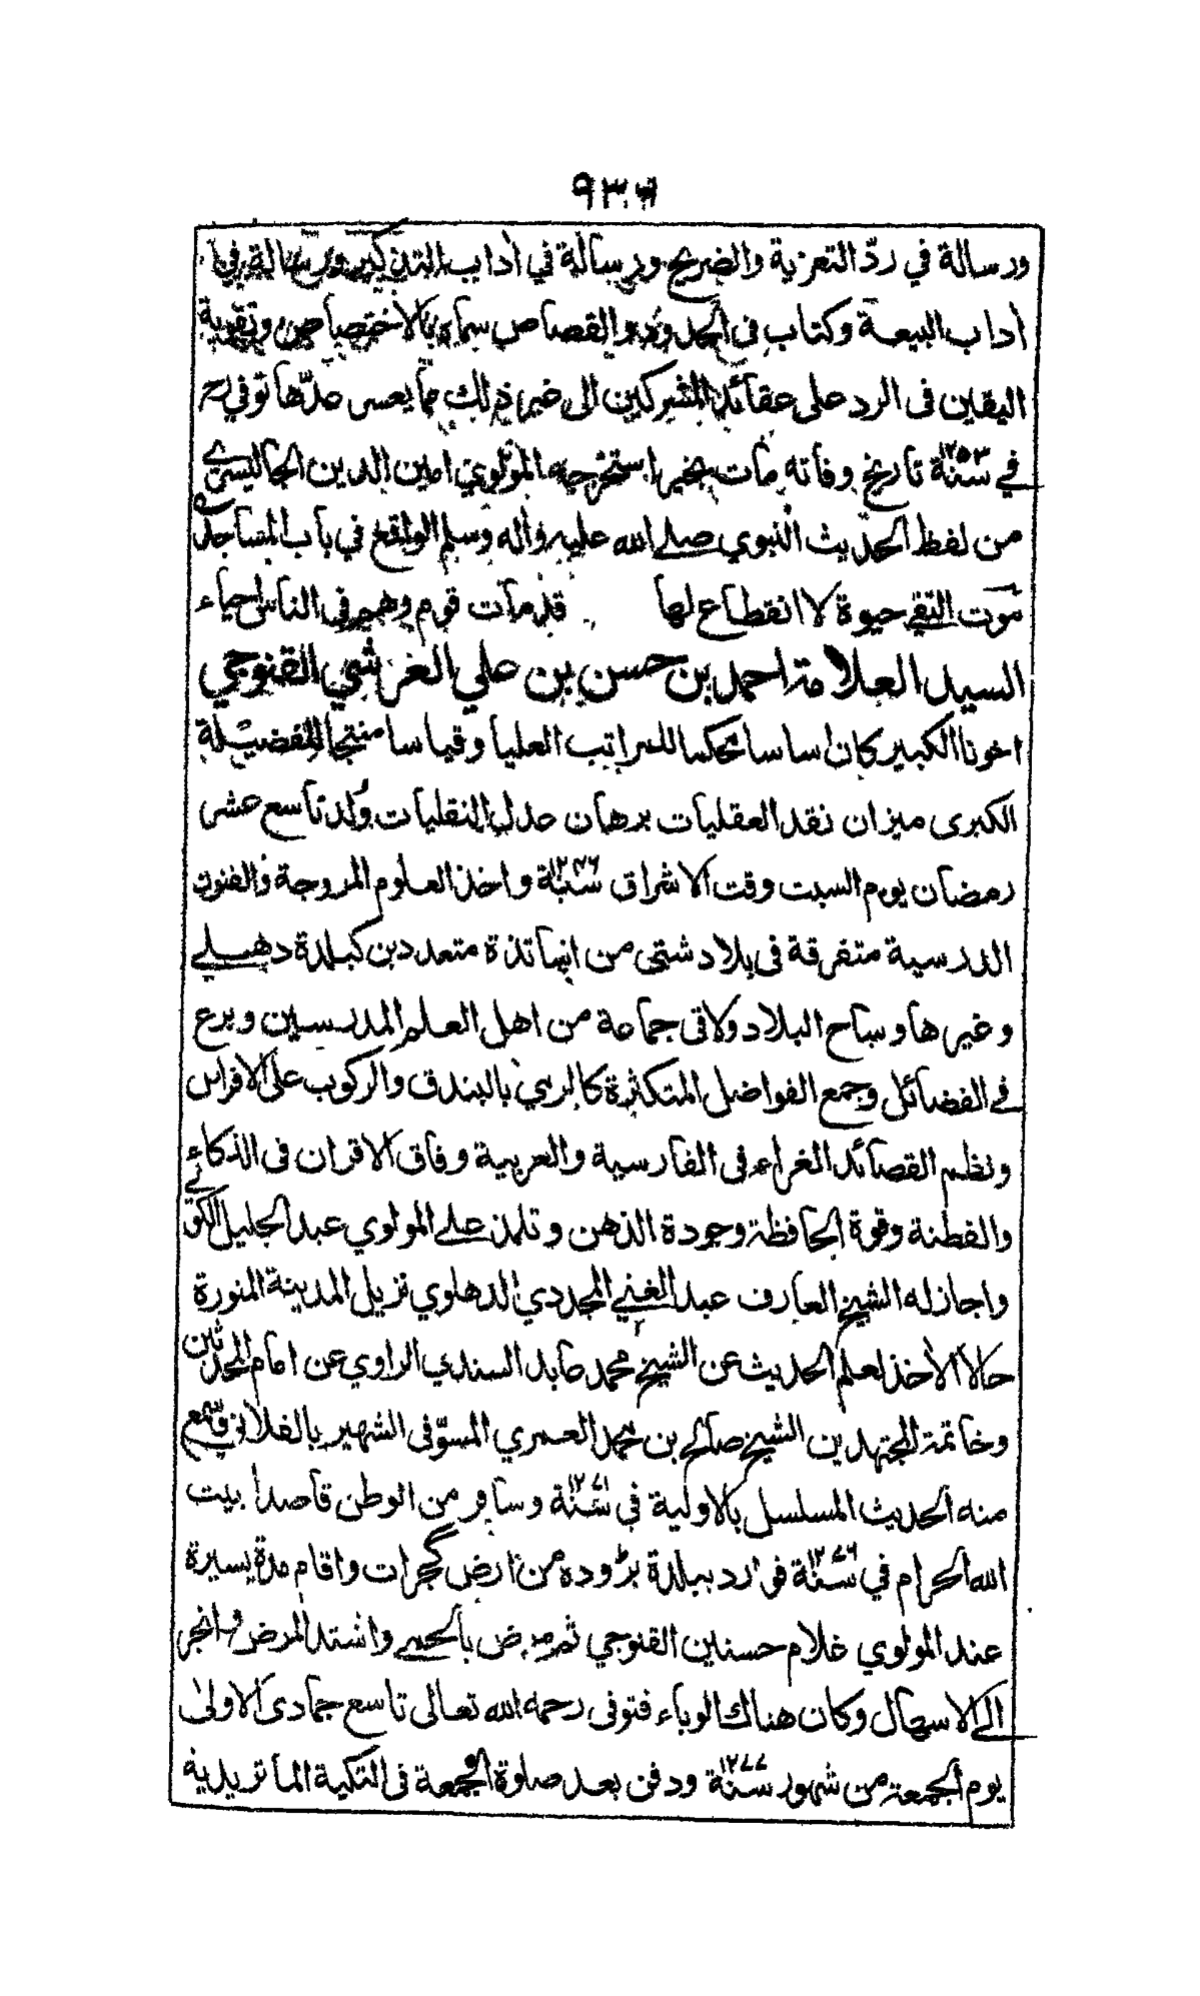 ٩٣٦
ورسالة في ردّ التعزية والضريح ورسالة في أداب التذكير ورسالة في
أداب البيعة وكتاب في الحدود والقصاص سماه بالاختصاص وتقوية
اليقين في الرد على عقائد المشركين الى غير ذلك مما يعسر عدّها توفي رح
في سنة ١٢٥٣ تاريخ وفاته مات بخير استخرجه المولوي امين الدين الجاليسري
من لفظ الحديث النبوي صلے الله عليه وأله وسلم الواقع في باب المساجد
موت التقے حيوة لا انقطاع لها قد مات قوم وهم في الناس احياء
السيد العلامة احمد بن حسن بن علي العرشي القنوجي
اخونا الكبير كان اساسا محكما للمراتب العليا وقياسا منتجا للفضيلة
الكبرى ميزان نقد العقليات برهان عدل النقليات ولد تاسع عشر
رمضان يوم السبت وقت الاشراق سنة ١٢٤٦ واخذ العلوم المروجة والفنون
الدرسية متفرقة في بلاد شتى من اساتذة متعددين كبلدة دهلے
وغيرها وساح البلاد ولاقى جماعة من اهل العلم المدرسين وبرع
في الفضائل وجمع الفواضل المتكثرة كالرمي بالبندق والركوب على الافراس
ونظم القصائد الغراء في الفارسية والعربية وفاق الاقران في الذكاء
والفطنة وقوة الحافظة وجودة الذهن وتلمذ علے المولوي عبد الجليل الكوئے
واجاز له الشيخ العارف عبد الغني المجددي الدهلوي نزيل المدينة المنورة
حالا الأخذ لعلم الحديث عن الشيخ محمد عابد السندي الراوي عن امام المحدثين
وخاتمة المجتهدين الشيخ صالح بن محمد العمري المسوّفي الشهير بالفلاني وسمع
منه الحديث المسلسل بالاولية في سنة ١٢٧١ وسافر من الوطن قاصدا بيت
الله الحرام في سنة ١٢٧٦ فوارد ببلدة بڑوده من ارض گجرات واقام مدة يسيرة
عند المولوي غلام حسنين القنوجي ثم مرض بالحمے واشتد المرض وانجر
الے الاسهال وكان هناك الوباء فتوفى رحمه الله تعالى تاسع جمادى الاولى
يوم الجمعة من شهور سنة ١٢٧٧ ودفن بعد صلوة الجمعة في التكية الماتريدية